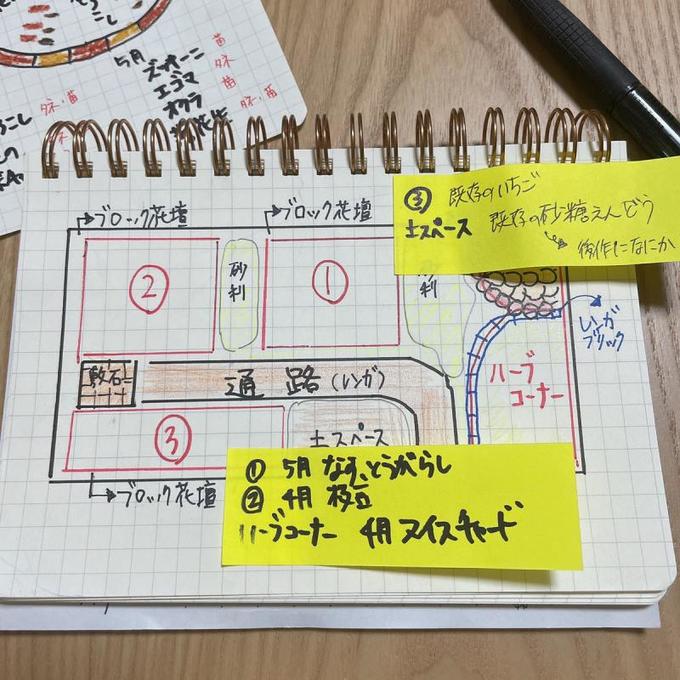 とうも
こし
5月
ズッキーニ
エゴマ
オクラ
落花生
苗
タネ
苗
タネ・苗
タネ・苗
タネ
ろこし
ブロック花壇
ブロック花壇
③ 既存のいちご
土スペース 既存の砂糖えんどう
後作になにか
②
砂利
①
砂利
レンガ
ブリック
ハーブ
コーナー
敷石
通路(レンガ)
③
土スペース
ブロック花壇
① 5月 なす、とうがらし
② 4月 枝豆
ハーブコーナー 4月 スイスチャード